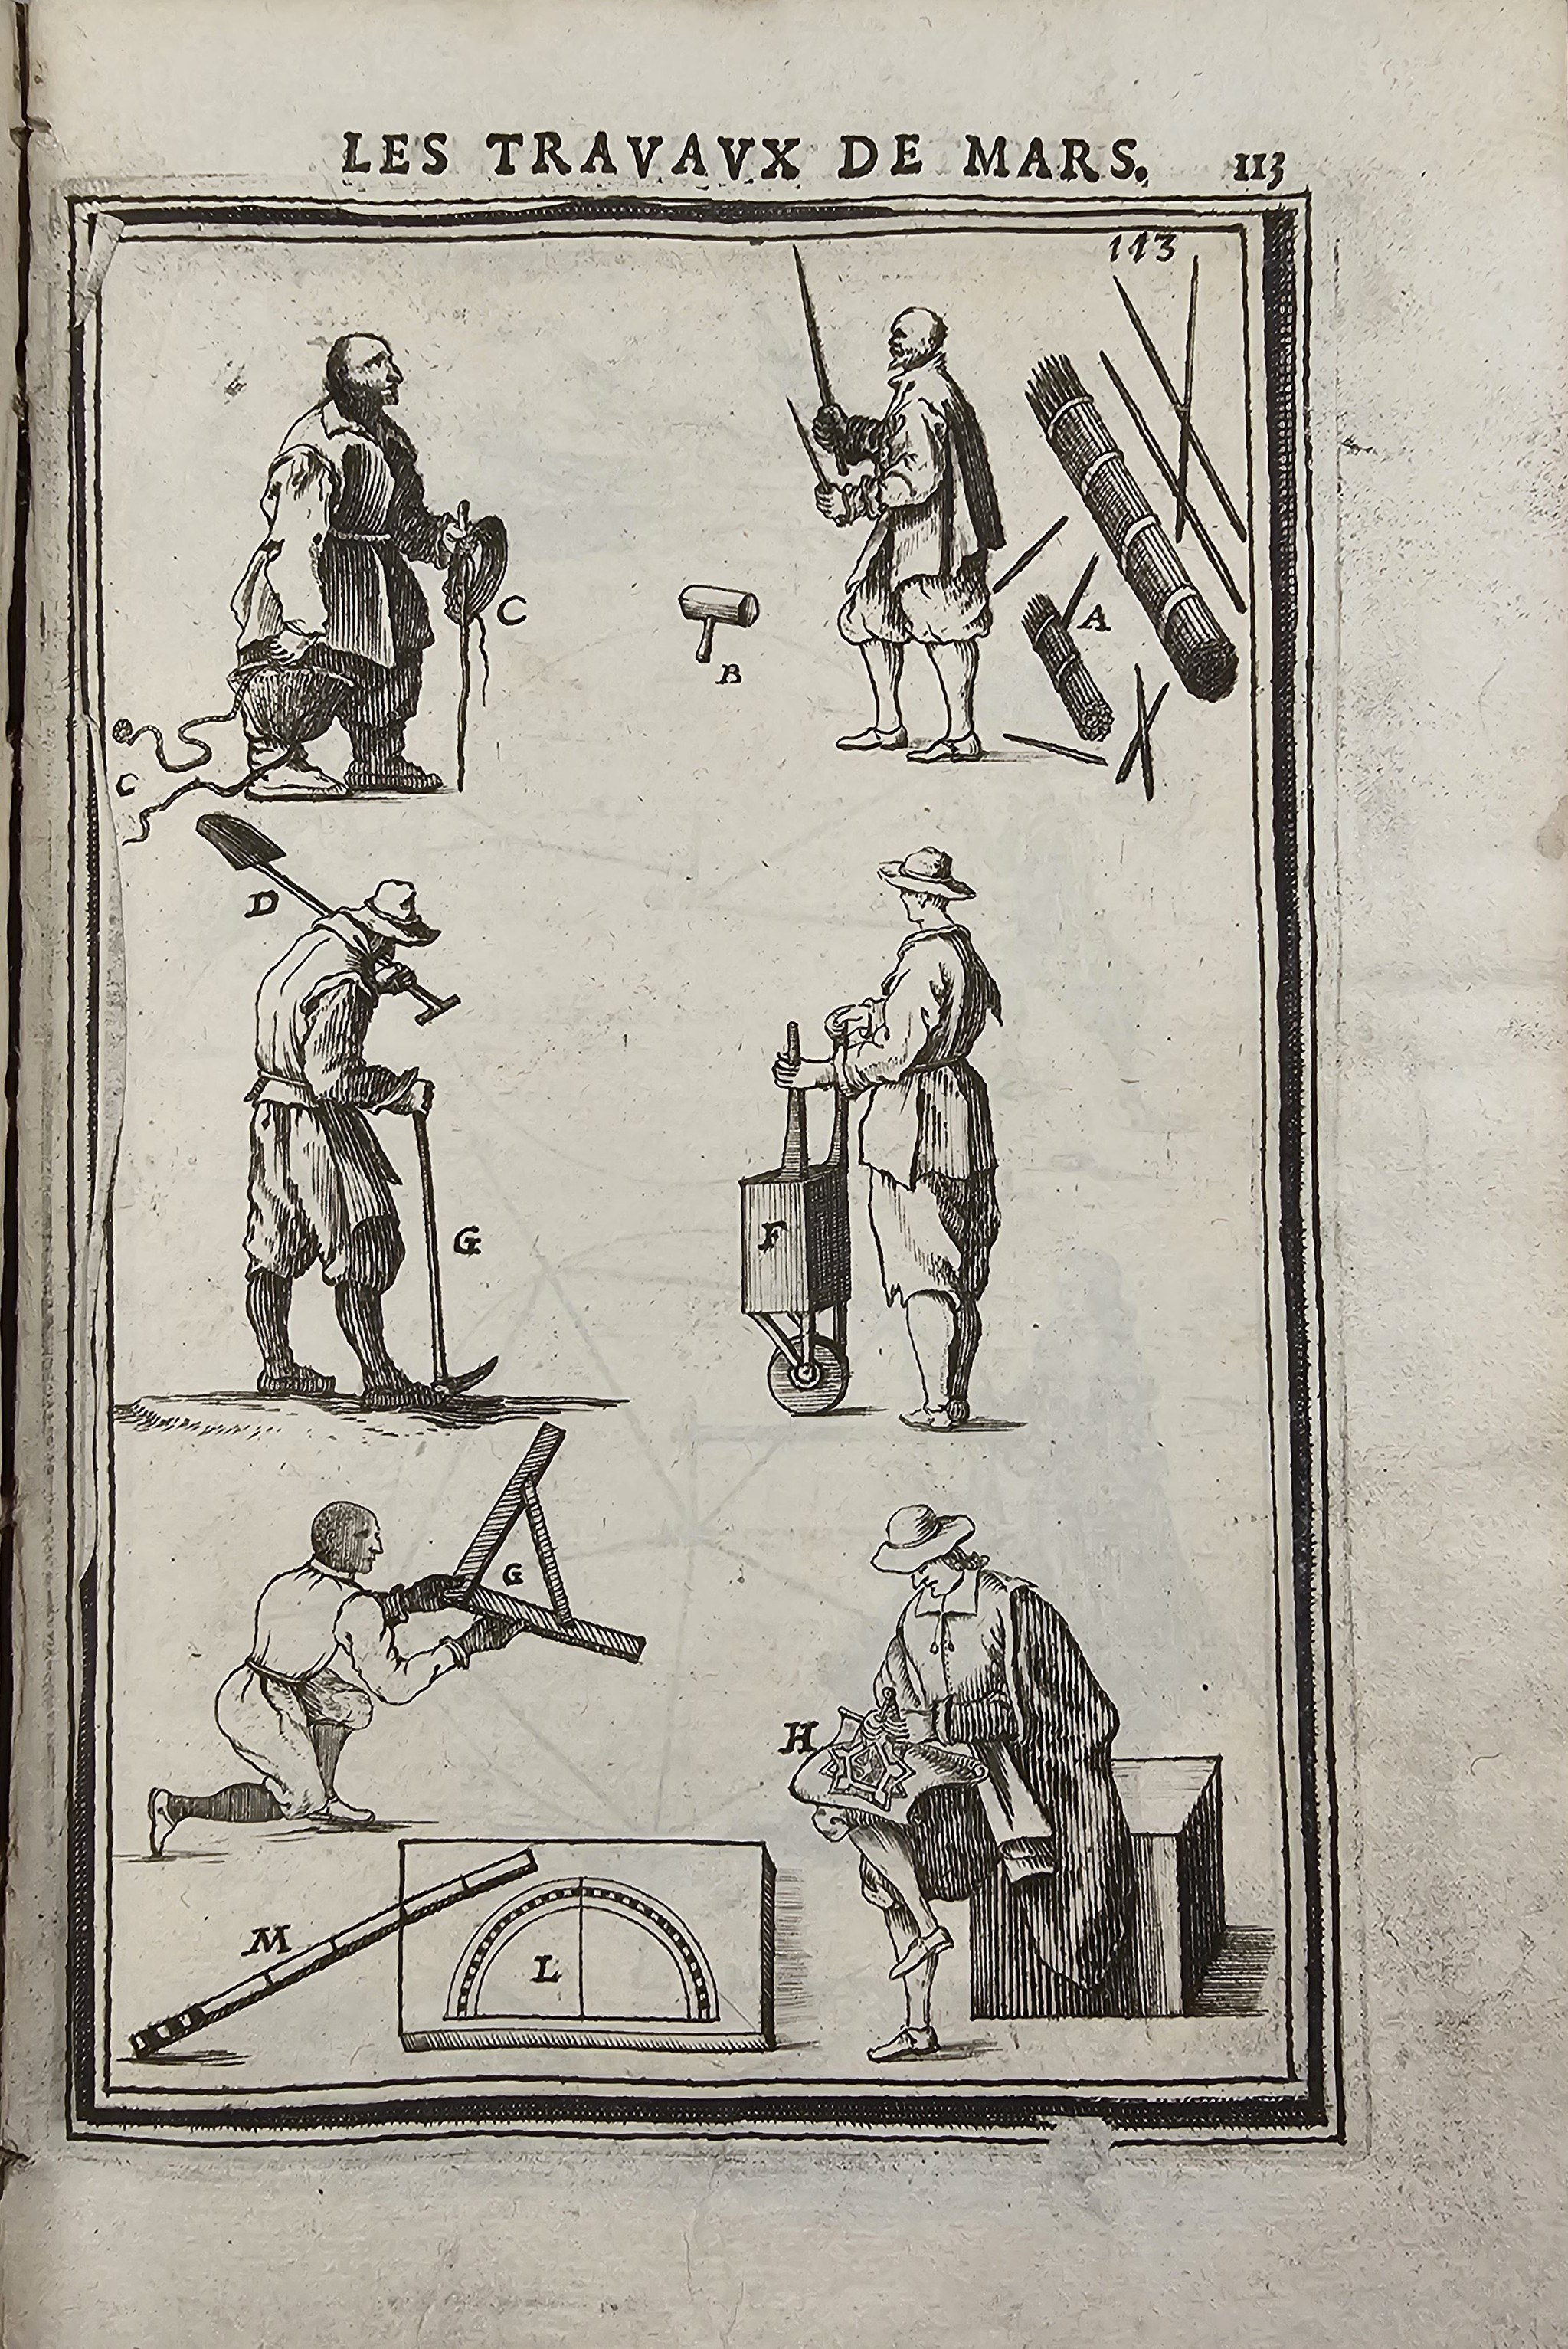 LES TRAVAVX DE MARS. 113
113
C
B
A
C
D
G
F
G
H
M
L